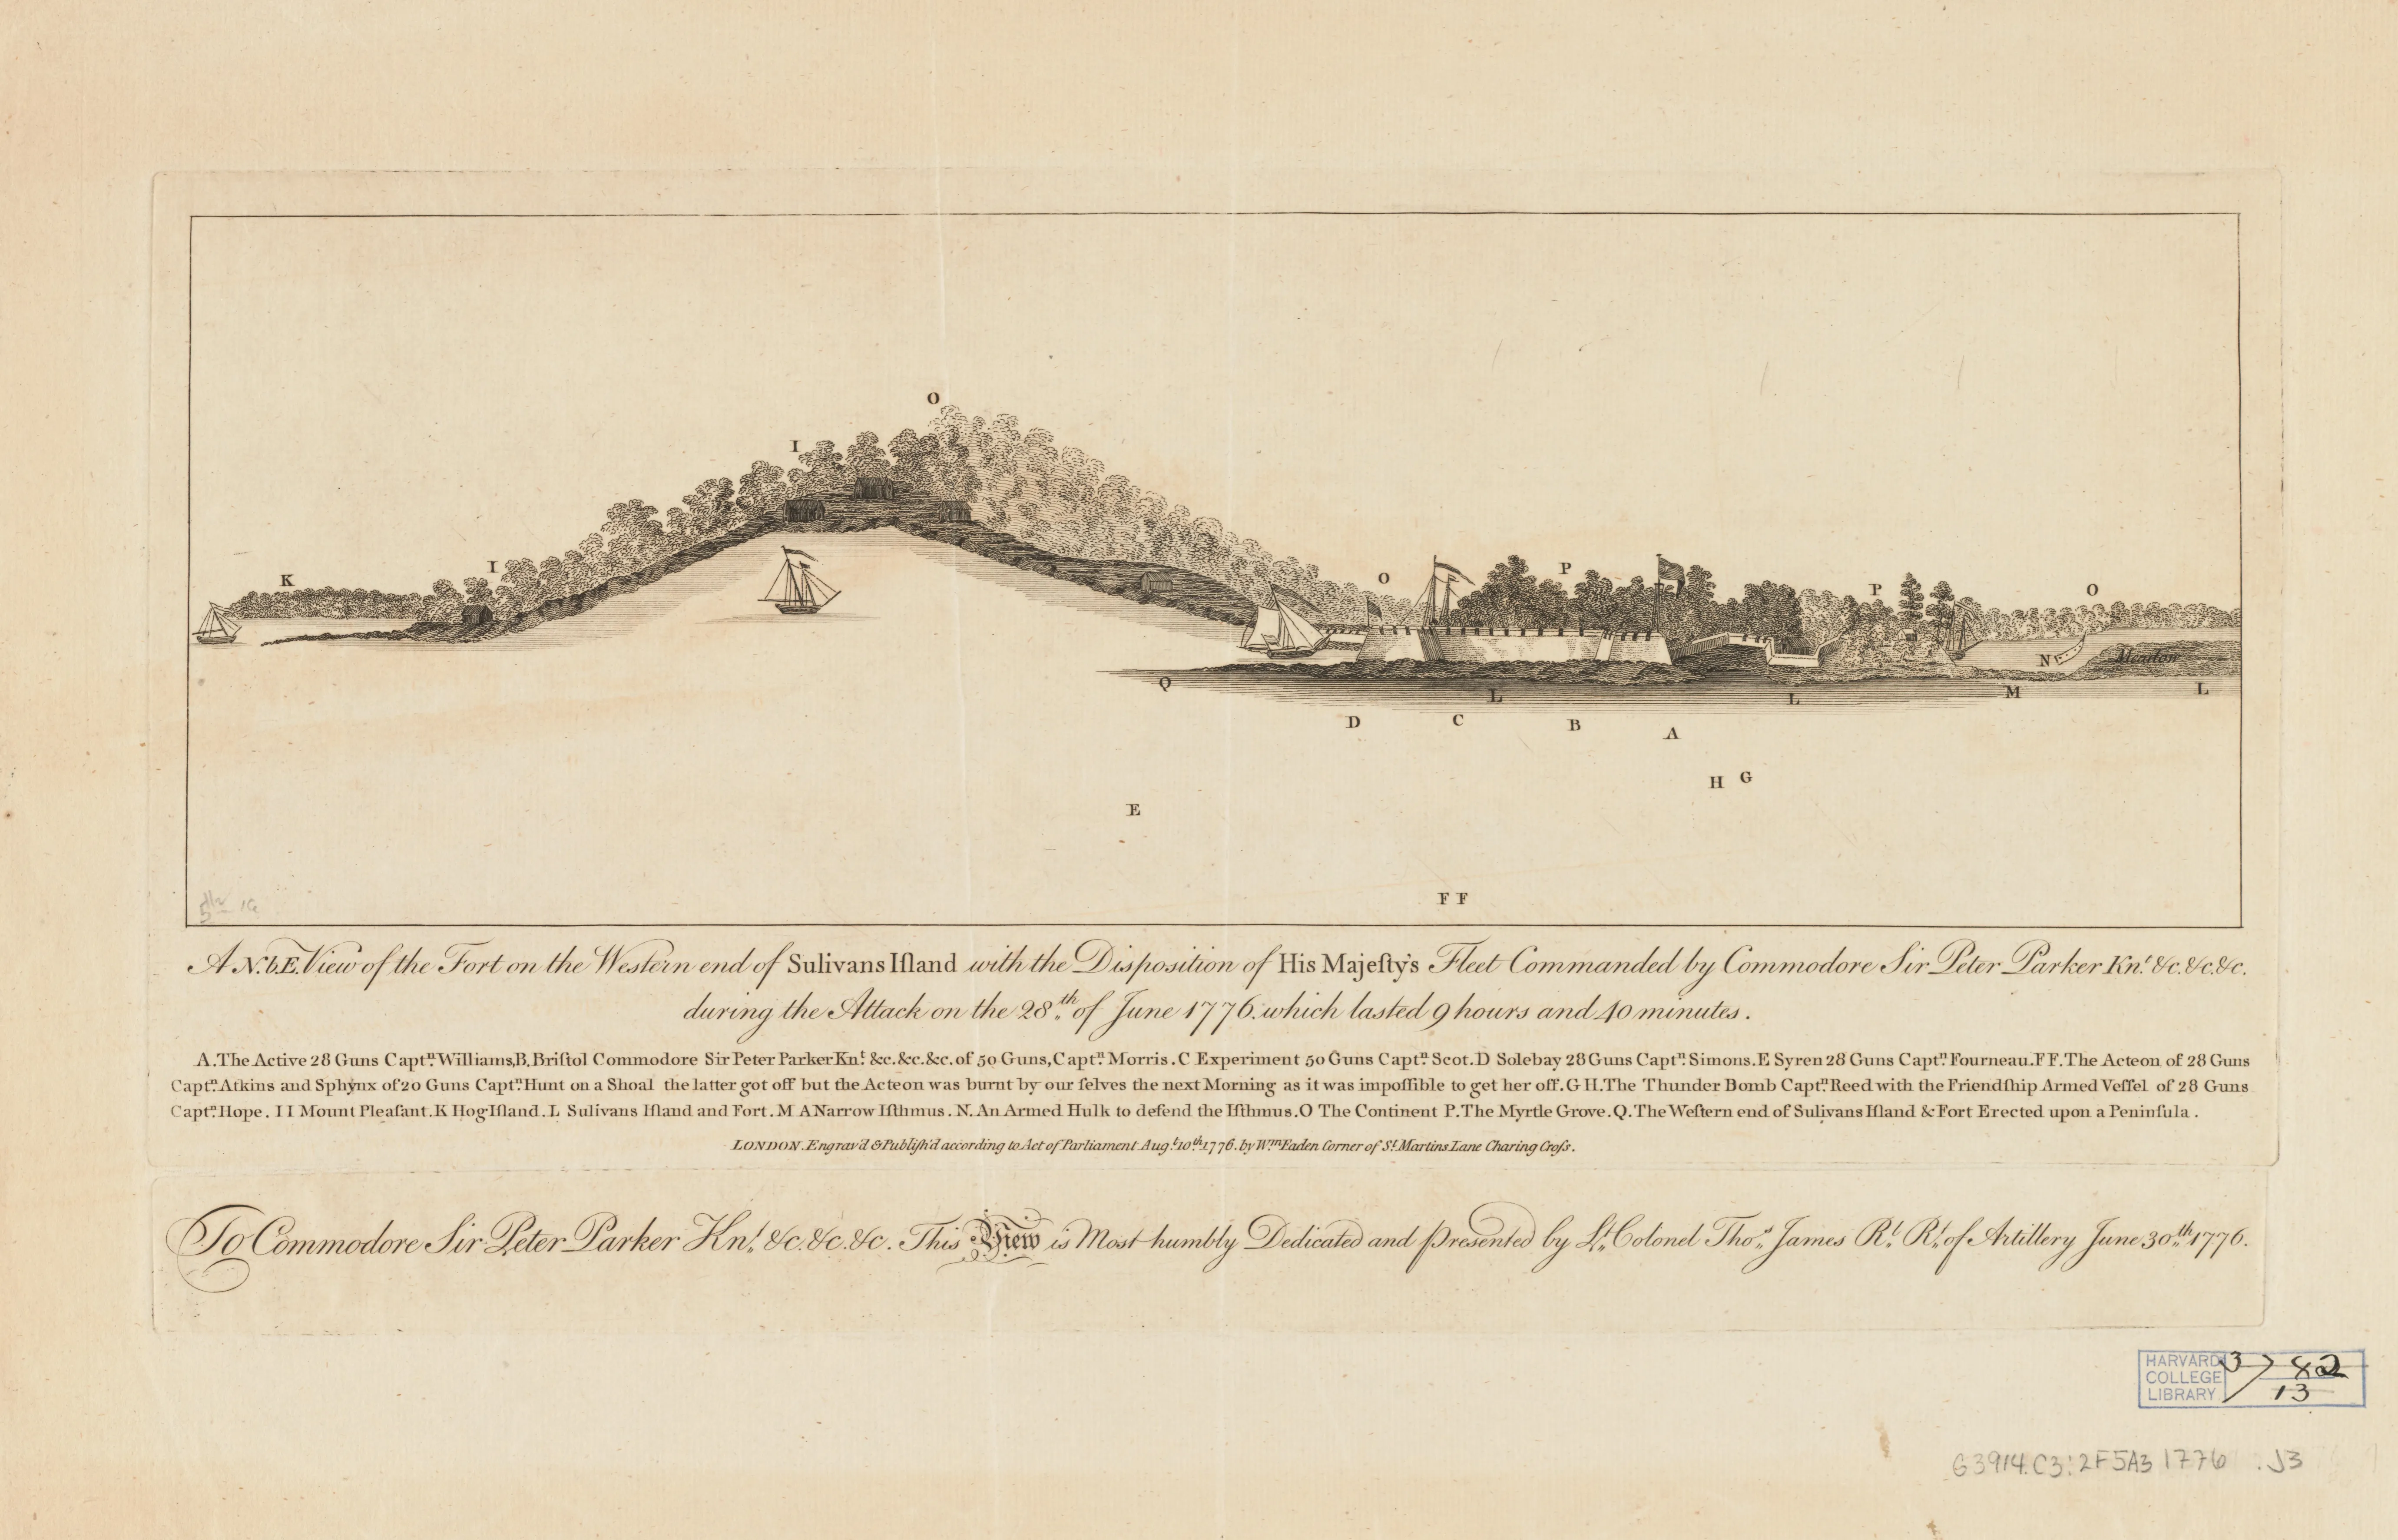 O
I
K
I
O
P
P
O
N
Meadow
Q
L
L
M
L
D
C
B
A
H G
E
F F
A N.b.E. View of the Fort on the Western end of Sulivans Iſland with the Disposition of His Majeſty's Fleet Commanded by Commodore Sir Peter Parker Knt. &c. &c. &c.
during the Attack on the 28th. of June 1776. which lasted 9 hours and 40 minutes.
A. The Active 28 Guns Captn. Williams, B. Briſtol Commodore Sir Peter Parker Knt. &c. &c. &c. of 50 Guns, Captn. Morris. C Experiment 50 Guns Captn. Scot. D Solebay 28 Guns Captn. Simons. E Syren 28 Guns Captn. Fourneau. F F. The Acteon of 28 Guns
Captn. Atkins and Sphynx of 20 Guns Captn. Hunt on a Shoal the latter got off but the Acteon was burnt by our ſelves the next Morning as it was impoſſible to get her off. G H. The Thunder Bomb Captn. Reed with the Friendſhip Armed Veſſel of 28 Guns
Captn. Hope. I I Mount Pleaſant. K Hog Iſland. L Sulivans Iſland and Fort. M A Narrow Iſthmus. N. An Armed Hulk to defend the Iſthmus. O The Continent P. The Myrtle Grove. Q. The Weſtern end of Sulivans Iſland & Fort Erected upon a Peninſula.
LONDON. Engrav'd & Publiſh'd according to Act of Parliament Augt. 10th. 1776. by Wm. Faden Corner of St. Martins Lane Charing Croſs.
To Commodore Sir Peter Parker Knt. &c. &c. &c. This View is Most humbly Dedicated and presented by Lt. Colonel Thos. James Rl. Rt. of Artillery June 30th. 1776.
HARVARD
COLLEGE
LIBRARY
3 82
13
G3914.C3:2F5A3 1776 .J3